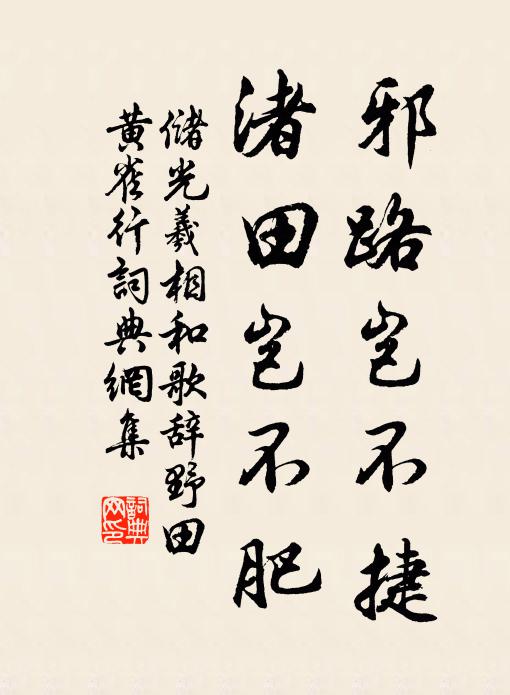 邪路岂不捷
渚田岂不肥
儲光羲相和歌辞野田
黃雀行詞典網集
詞典
网印